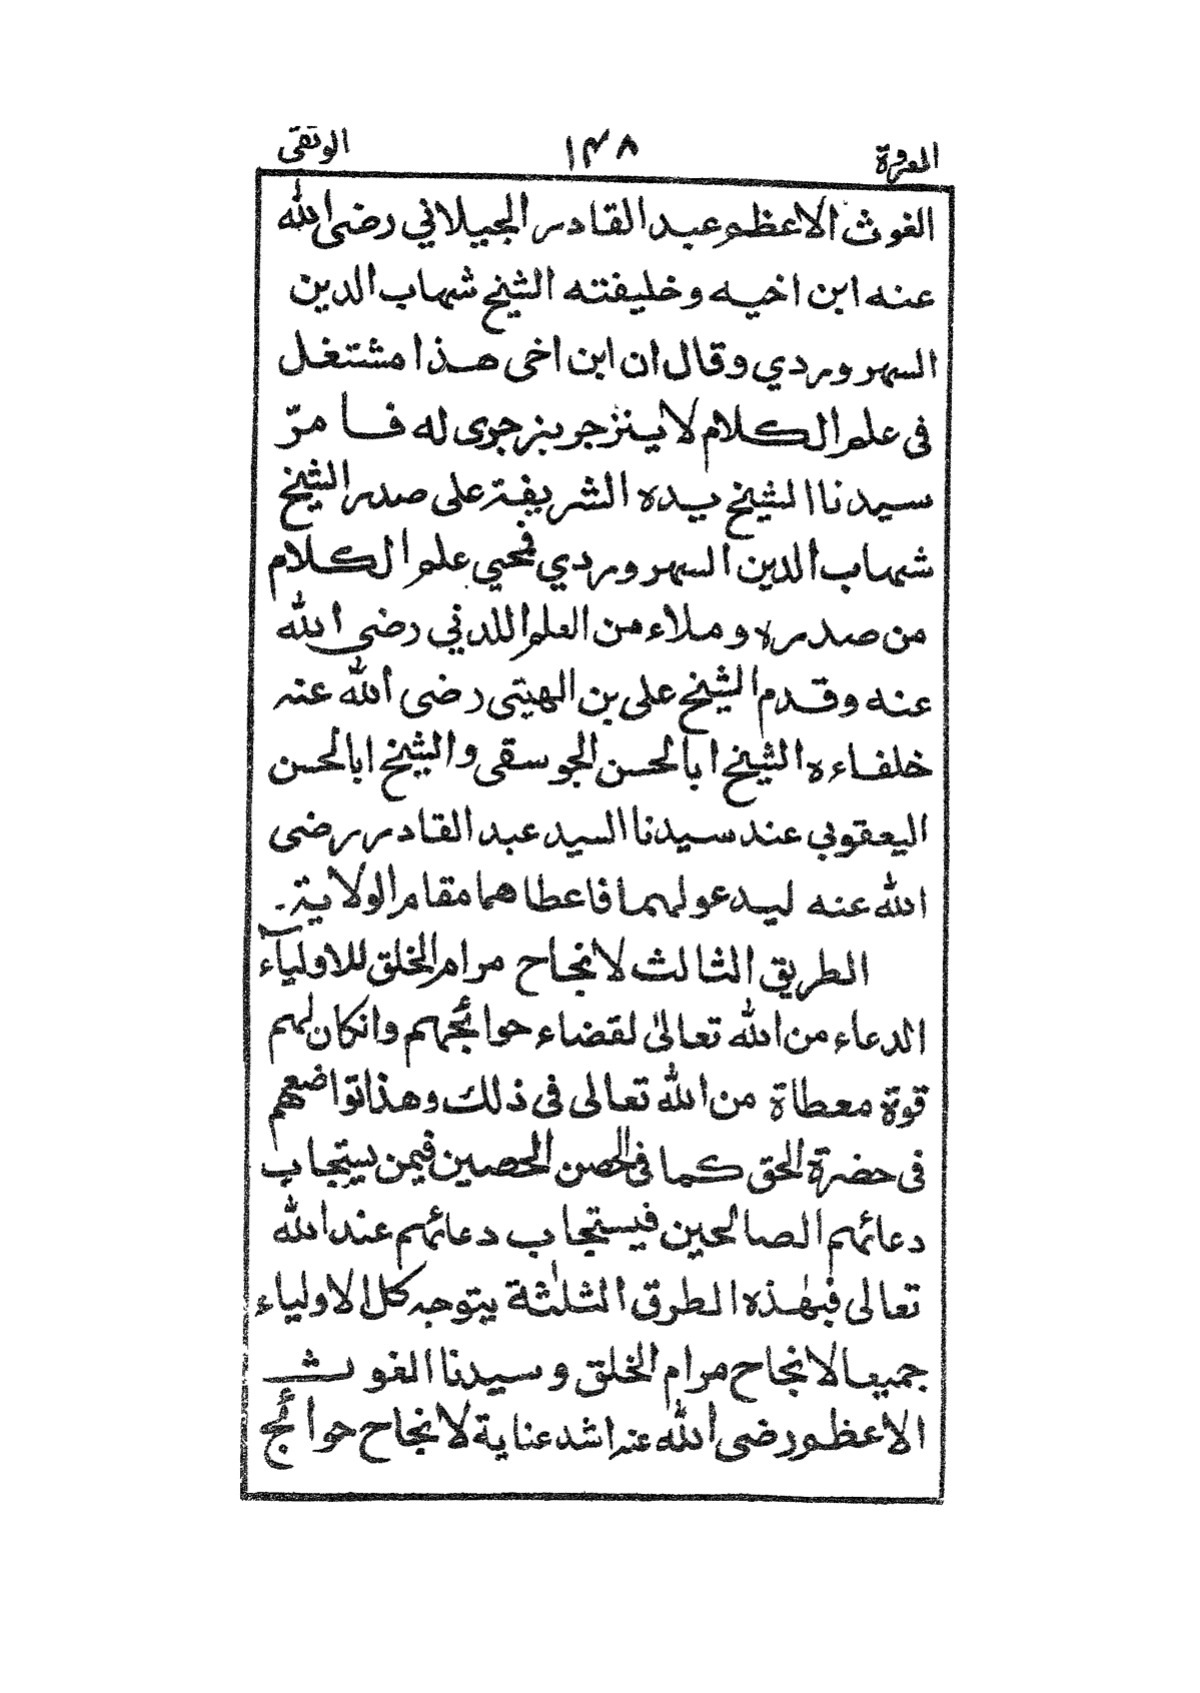 العروة ١٤٨ الوثقى
الغوث الاعظم عبد القادر الجيلاني رضى الله
عنه ابن اخيه وخليفته الشيخ شهاب الدين
السهروردي وقال ان ابن اخى هذا مشتغل
فى علم الكلام لا ينزجر بزجرى له فا مرّ
سيدنا الشيخ يده الشريفة على صدر الشيخ
شهاب الدين السهروردي فمحيي علم الكلام
من صدره وملاء من العلم اللدني رضى الله
عنه وقدم الشيخ على بن الهيتى رضى الله عنه
خلفاءه الشيخ ابا الحسن الجوسقى والشيخ ابا الحسن
اليعقوبي عند سيدنا السيد عبد القادر رضى
الله عنه ليدعو لهما فاعطاهما مقام الولاية۔
الطريق الثالث لانجاح مرام الخلق للاولياء
الدعاء من الله تعالىٰ لقضاء حوائجهم وانكان لهم
قوة معطاة من الله تعالى فى ذلك وهذا تواضعهم
فى حضرة الحق كما فى الحصن الحصين فيمن يستجاب
دعائهم الصالحين فيستجاب دعائهم عند الله
تعالى فبهٰذه الطرق الثلٰثة يتوجه كل الاولياء
جميعا لانجاح مرام الخلق وسيدنا الغوث
الاعظم رضى الله عنه اشد عناية لانجاح حوائج